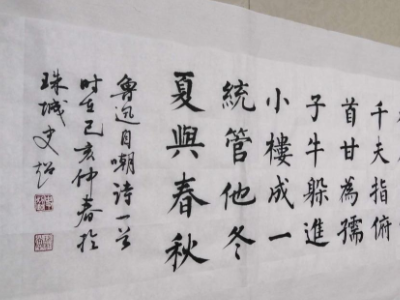 千夫指俯
首甘為孺
子牛躲進
小樓成一
統管他冬
夏與春秋
魯迅自嘲詩一首
時在己亥仲春於
珠城史